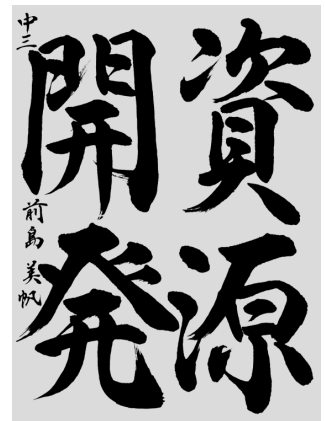 資源
開発
中三 前島美帆